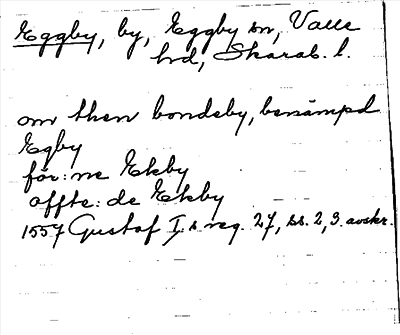 Eggby, by, Eggby sn, Valle
hd, Skarab. l.
om then bondeby, benämpd
Egby
för: ne Ekby
offte: de Ekby
1557 Gustaf I:s reg. 27, ss. 2, 3. avskr.